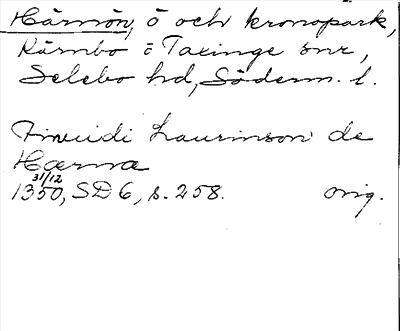 Härnön, ö och kronopark,
Kärnbo o Taxinge snr,
Selebo hd, Söderm. l.
Laurinson de
Hærna
31/12
1350, SD 6, s. 258. orig.